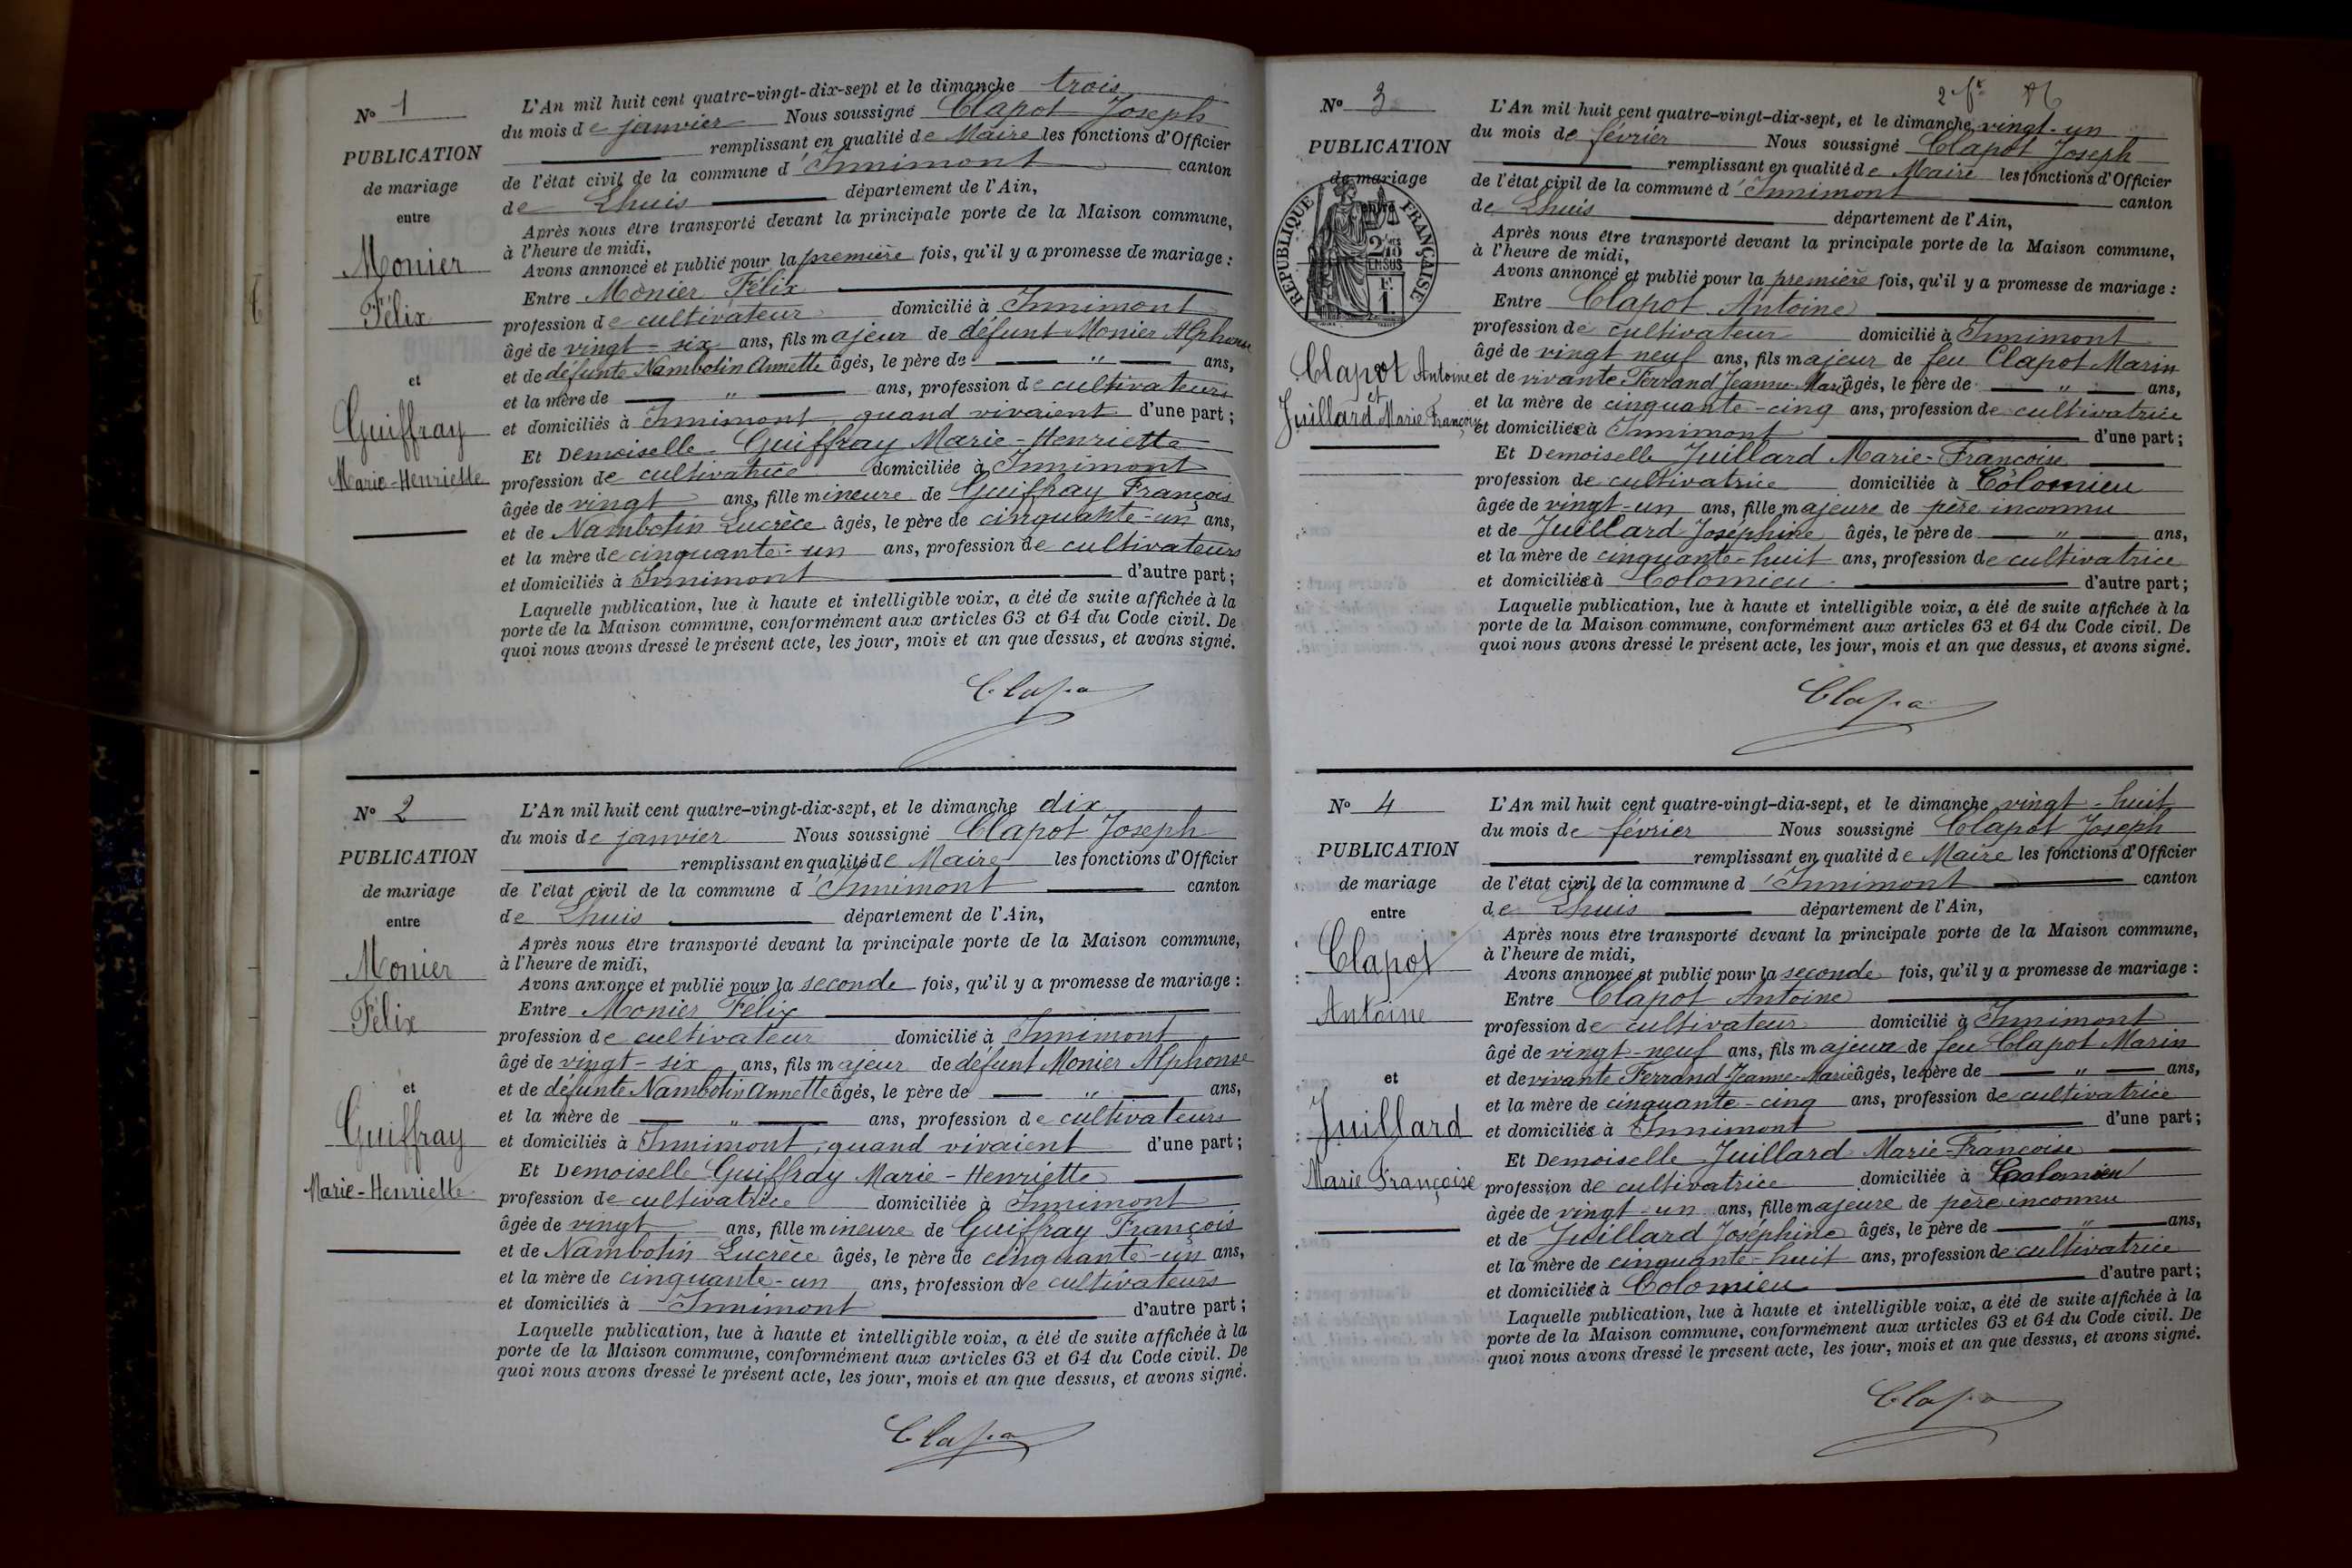 N° 1
PUBLICATION
de mariage
entre
Monier
Félix
et
Guiffray
Marie-Henriette
L'An mil huit cent quatre-vingt-dix-sept et le dimanche trois
du mois de janvier Nous soussigné Clapot Joseph
remplissant en qualité de Maire les fonctions d'Officier
de l'état civil de la commune d'Innimont canton
de Lhuis département de l'Ain,
Après nous être transporté devant la principale porte de la Maison commune,
à l'heure de midi,
Avons annoncé et publié pour la première fois, qu'il y a promesse de mariage :
Entre Monier Félix
profession de cultivateur domicilié à Innimont
âgé de vingt-six ans, fils majeur de défunt Monier Alphonse
et de défunte Nambotin Annette âgés, le père de " ans,
et la mère de " ans, profession de cultivateurs
et domiciliés à Innimont quand vivaient d'une part ;
Et Demoiselle Guiffray Marie-Henriette
profession de cultivatrice domiciliée à Innimont
âgée de vingt ans, fille mineure de Guiffray François
et de Nambotin Lucrèce âgés, le père de cinquante-un ans,
et la mère de cinquante-un ans, profession de cultivateurs
et domiciliés à Innimont d'autre part ;
Laquelle publication, lue à haute et intelligible voix, a été de suite affichée à la
porte de la Maison commune, conformément aux articles 63 et 64 du Code civil. De
quoi nous avons dressé le présent acte, les jour, mois et an que dessus, et avons signé.
N° 2
PUBLICATION
de mariage
entre
Monier
Félix
et
Guiffray
Marie-Henriette
L'An mil huit cent quatre-vingt-dix-sept, et le dimanche dix
du mois de janvier Nous soussigné Clapot Joseph
remplissant en qualité de Maire les fonctions d'Officier
de l'état civil de la commune d'Innimont canton
de Lhuis département de l'Ain,
Après nous être transporté devant la principale porte de la Maison commune,
à l'heure de midi,
Avons annoncé et publié pour la seconde fois, qu'il y a promesse de mariage :
Entre Monier Félix
profession de cultivateur domicilié à Innimont
âgé de vingt-six ans, fils majeur de défunt Monier Alphonse
et de défunte Nambotin Annette âgés, le père de " ans,
et la mère de " ans, profession de cultivateurs
et domiciliés à Innimont, quand vivaient d'une part ;
Et Demoiselle Guiffray Marie-Henriette
profession de cultivatrice domiciliée à Innimont
âgée de vingt ans, fille mineure de Guiffray François
et de Nambotin Lucrèce âgés, le père de cinquante-un ans,
et la mère de cinquante-un ans, profession de cultivateurs
et domiciliés à Innimont d'autre part ;
Laquelle publication, lue à haute et intelligible voix, a été de suite affichée à la
porte de la Maison commune, conformément aux articles 63 et 64 du Code civil. De
quoi nous avons dressé le présent acte, les jour, mois et an que dessus, et avons signé.
N° 3
PUBLICATION
de mariage
entre
RÉPUBLIQUE FRANÇAISE
Clapot Antoine
et
Juillard Marie Françoise
L'An mil huit cent quatre-vingt-dix-sept, et le dimanche vingt-un
du mois de février Nous soussigné Clapot Joseph
remplissant en qualité de Maire les fonctions d'Officier
de l'état civil de la commune d'Innimont canton
de Lhuis département de l'Ain,
Après nous être transporté devant la principale porte de la Maison commune,
à l'heure de midi,
Avons annoncé et publié pour la première fois, qu'il y a promesse de mariage :
Entre Clapot Antoine
profession de cultivateur domicilié à Innimont
âgé de vingt neuf ans, fils majeur de feu Clapot Marin
et de vivante Ferrand Jeanne-Marie âgés, le père de " ans,
et la mère de cinquante-cinq ans, profession de cultivatrice
et domiciliée à Innimont d'une part ;
Et Demoiselle Juillard Marie-Françoise
profession de cultivatrice domiciliée à Colomieu
âgée de vingt-un ans, fille majeure de père inconnu
et de Juillard Joséphine âgés, le père de " ans,
et la mère de cinquante-huit ans, profession de cultivatrice
et domiciliée à Colomieu d'autre part ;
Laquelle publication, lue à haute et intelligible voix, a été de suite affichée à la
porte de la Maison commune, conformément aux articles 63 et 64 du Code civil. De
quoi nous avons dressé le présent acte, les jour, mois et an que dessus, et avons signé.
N° 4
PUBLICATION
de mariage
entre
Clapot
Antoine
et
Juillard
Marie Françoise
L'An mil huit cent quatre-vingt-dia-sept, et le dimanche vingt-huit
du mois de février Nous soussigné Clapot Joseph
remplissant en qualité de Maire les fonctions d'Officier
de l'état civil de la commune d'Innimont canton
de Lhuis département de l'Ain,
Après nous être transporté devant la principale porte de la Maison commune,
à l'heure de midi,
Avons annoncé et publié pour la seconde fois, qu'il y a promesse de mariage :
Entre Clapot Antoine
profession de cultivateur domicilié à Innimont
âgé de vingt-neuf ans, fils majeur de feu Clapot Marin
et de vivante Ferrand Jeanne-Marie âgés, le père de " ans,
et la mère de cinquante-cinq ans, profession de cultivatrice
et domiciliée à Innimont d'une part ;
Et Demoiselle Juillard Marie-Françoise
profession de cultivatrice domiciliée à Colomieu
âgée de vingt-un ans, fille majeure de père inconnu
et de Juillard Joséphine âgés, le père de " ans,
et la mère de cinquante-huit ans, profession de cultivatrice
et domiciliée à Colomieu d'autre part ;
Laquelle publication, lue à haute et intelligible voix, a été de suite affichée à la
porte de la Maison commune, conformément aux articles 63 et 64 du Code civil. De
quoi nous avons dressé le présent acte, les jour, mois et an que dessus, et avons signé.